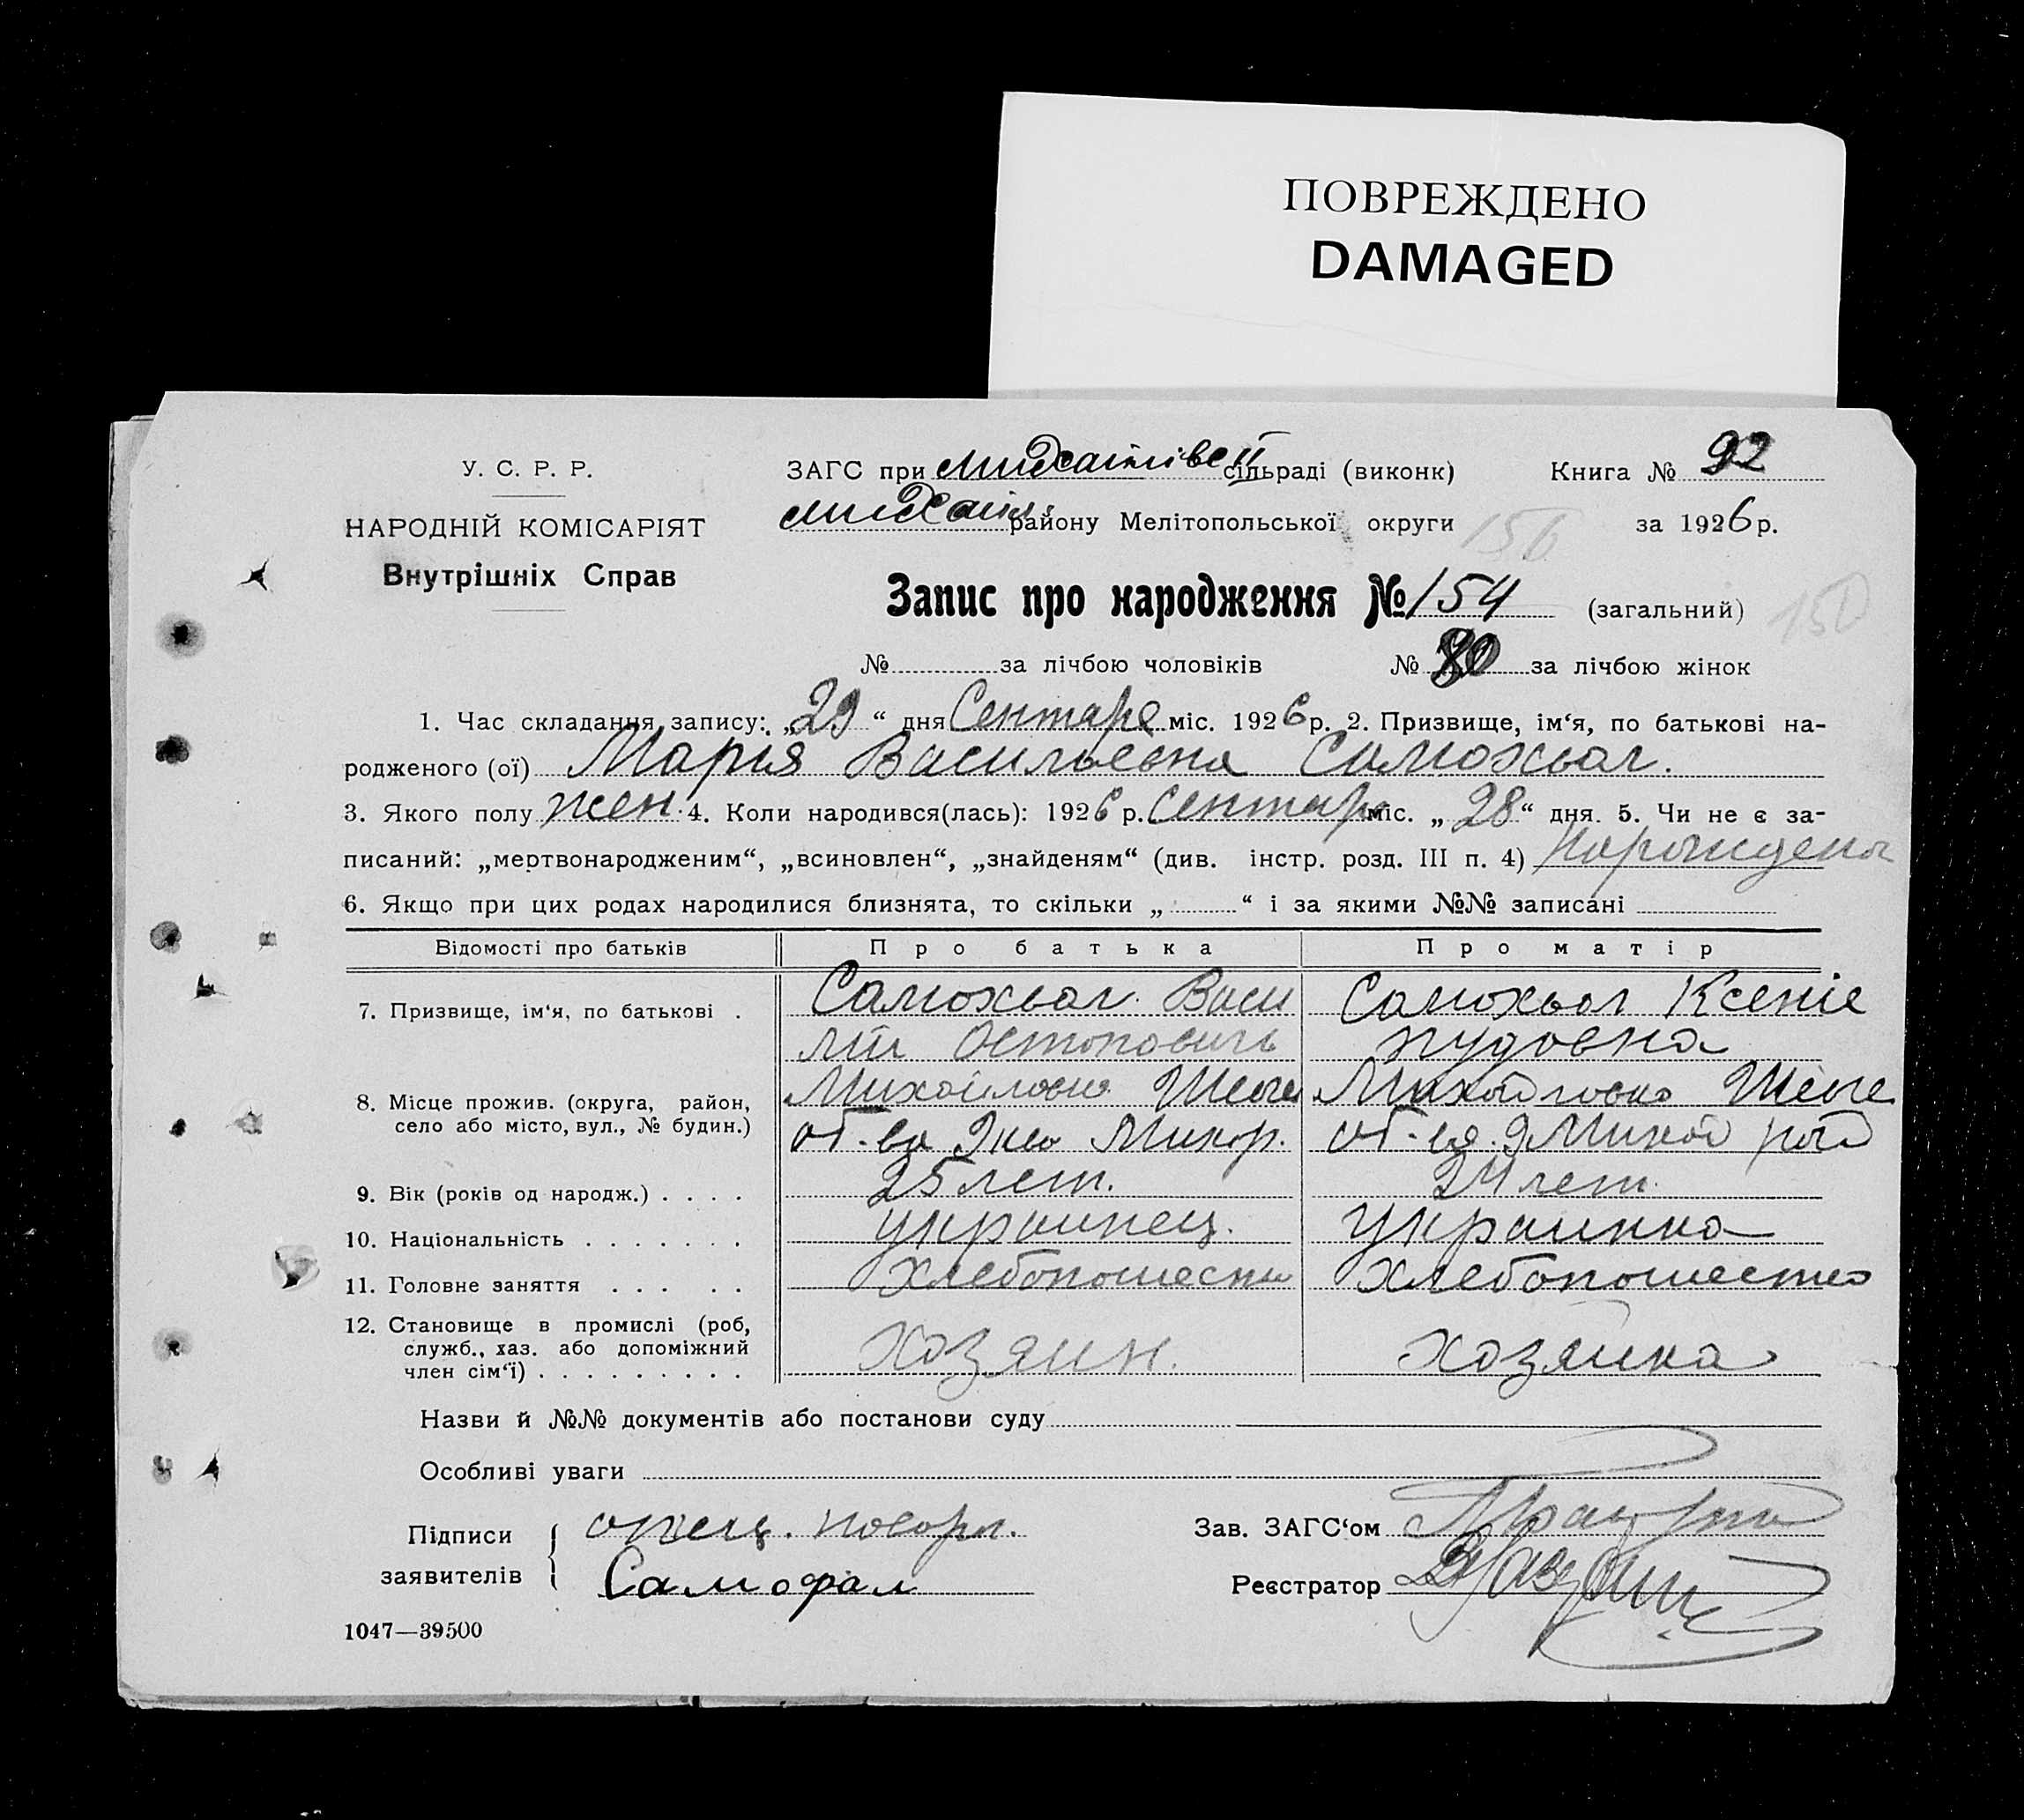 ПОВРЕЖДЕНО
DAMAGED
У. С. Р. Р.
НАРОДНІЙ КОМІСАРІЯТ
Внутрішніх Справ
ЗАГС при сільраді (виконк) Книга № 92
району Мелітопольської округи 156 за 1926 р.
Запис про народження № 154 (загальний) 150
№ за лічбою чоловіків № 80 за лічбою жінок
1. Час складання запису: „29“ дня Сентяре міс. 1926 р. 2. Призвище, ім‘я, по батькові на-
родженого (ої) Мария Васильевна Самохвал.
3. Якого полу жен. 4. Коли народився(лась): 1926 р. Сентяре міс. „28“ дня. 5. Чи не є за-
писаний: „мертвонародженим“, „всиновлен“, „знайденям“ (див. інстр. розд. III п. 4) Нарождена
6. Якщо при цих родах народилися близнята, то скільки „ “ і за якими №№ записані
Відомості про батьків Про батька Про матір
7. Призвище, ім‘я, по батькові . Самохвал Васи Самохвал Ксеніе
лий Остапович
8. Місце прожив. (округа, район, Михайловка Михайловка
село або місто, вул., № будин.)
9. Вік (років од народж.) . . . . 25 лет. 24 лет.
10. Національність . . . . . . . украинец. украинка
11. Головне заняття . . . . .
12. Становище в промислі (роб,
служб., хаз. або допоміжний
член сім‘ї) . . . . . . . . . хозяин. хозяика
Назви й №№ документів або постанови суду
Особливі уваги
Підписи отец.
заявителів Самофал
Зав. ЗАГС‘ом
Реєстратор
1047—39500